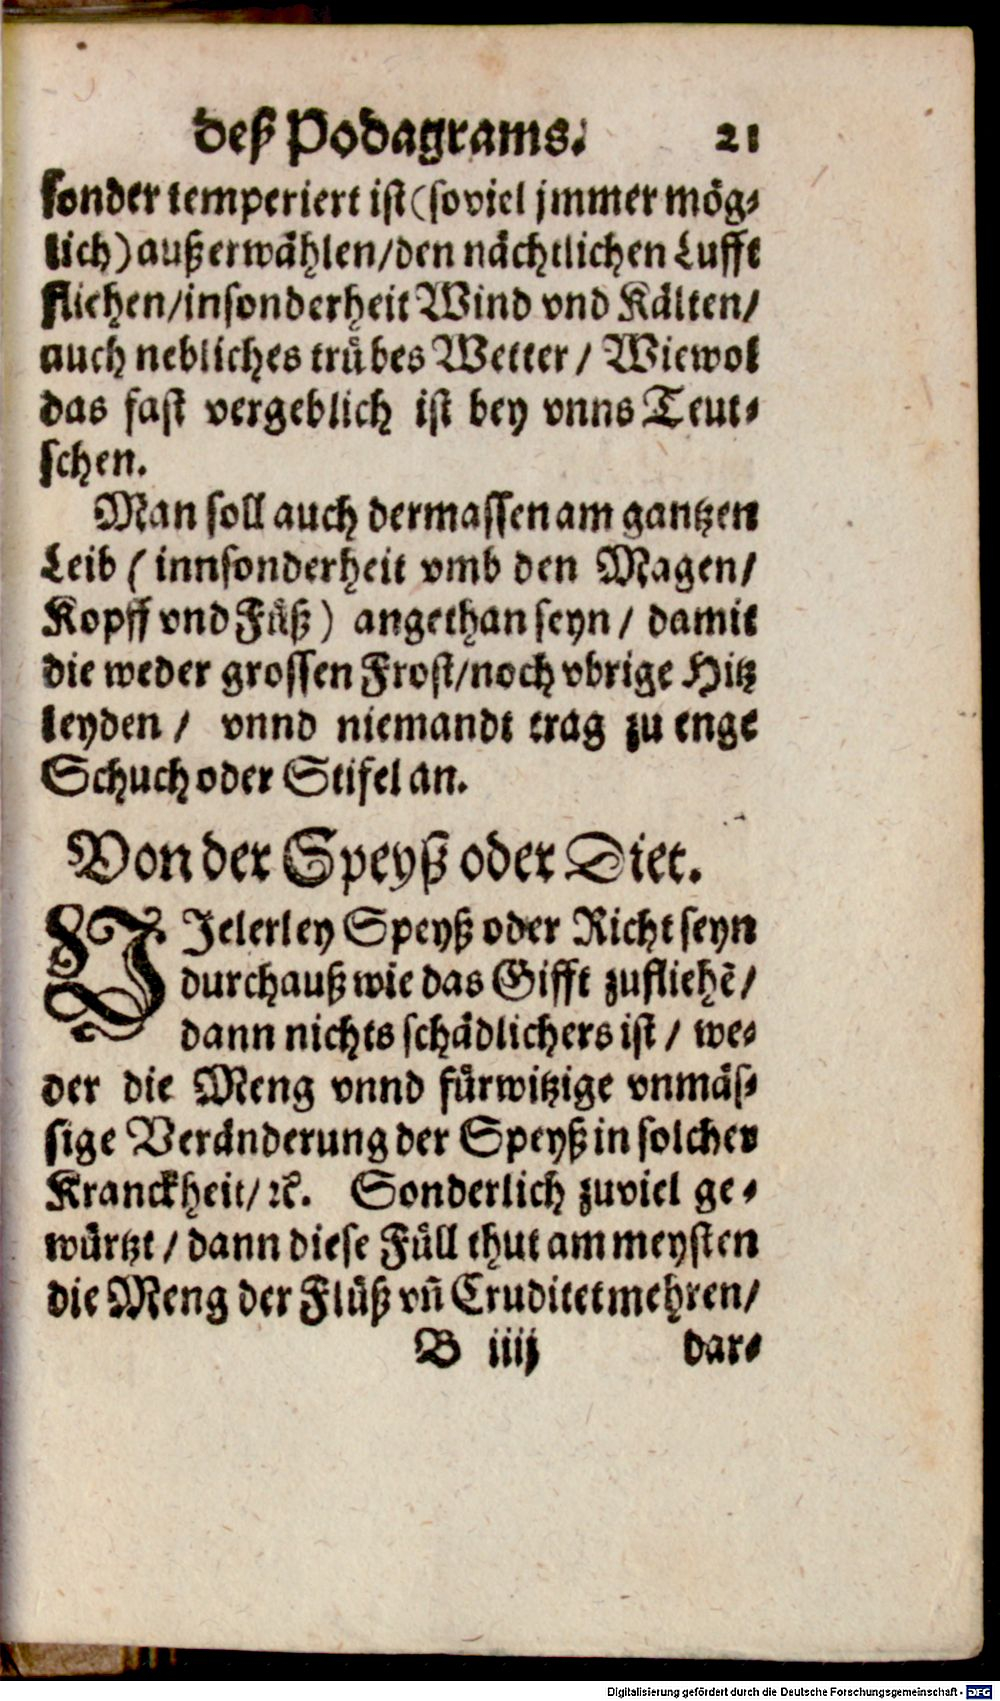 deß Podagrams. 21
sonder temperiert ist (soviel jmmer mög-
lich) außerwählen/den nächtlichen Lufft
fliehen/insonderheit Wind vnd Kälten/
auch nebliches trübes Wetter / Wiewol
das fast vergeblich ist bey vnns Teut-
schen.
Man soll auch dermassen am gantzen
Leib (innsonderheit vmb den Magen/
Kopff vnd Füß) angethan seyn / damit
die weder grossen Frost/noch vbrige Hitz
leyden / vnnd niemandt trag zu enge
Schuch oder Stifel an.
Von der Speyß oder Diet.
VIelerley Speyß oder Richt seyn
durchauß wie das Gifft zufliehē/
dann nichts schädlichers ist / we-
der die Meng vnnd fürwitzige vnmäs-
sige Veränderung der Speyß in solcher
Kranckheit/ꝛc. Sonderlich zuviel ge-
würtzt / dann diese Füll thut am meysten
die Meng der Flüß vn̄ Cruditet mehren/
B iiij dar-
Digitalisierung gefördert durch die Deutsche Forschungsgemeinschaft - DFG